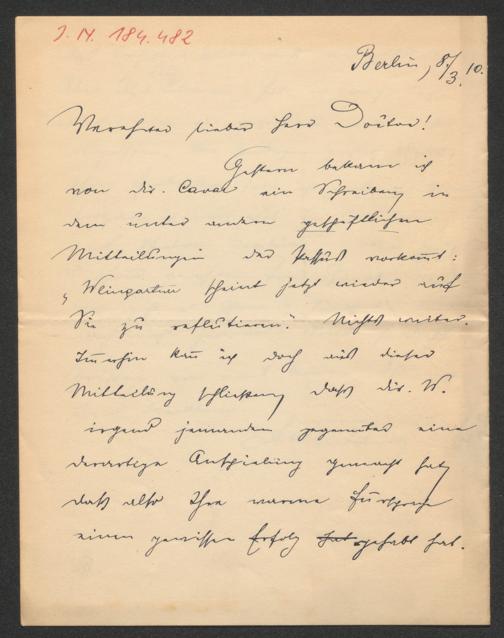 J. N. 184.482
Berlin, 8/3. 10.
Verehrter lieber Herr Doctor!
Gestern bekam ich
von Dir. Cavar ein Schreiben, in
dem unter andern geschäftlichen
Mitteilungen der Passus vorkommt:
„Weingartner scheint jetzt wieder auf
Sie zu reflectieren". Nichts weiter.
Immerhin kann ich doch aus dieser
Mitteilung schließen, daß Dir. W.
irgend jemanden gegenüber eine
derartige Anspielung gemacht hat,
daß also Ihre warme Fürsprache
einen gewissen Erfolg hat gehabt hat.